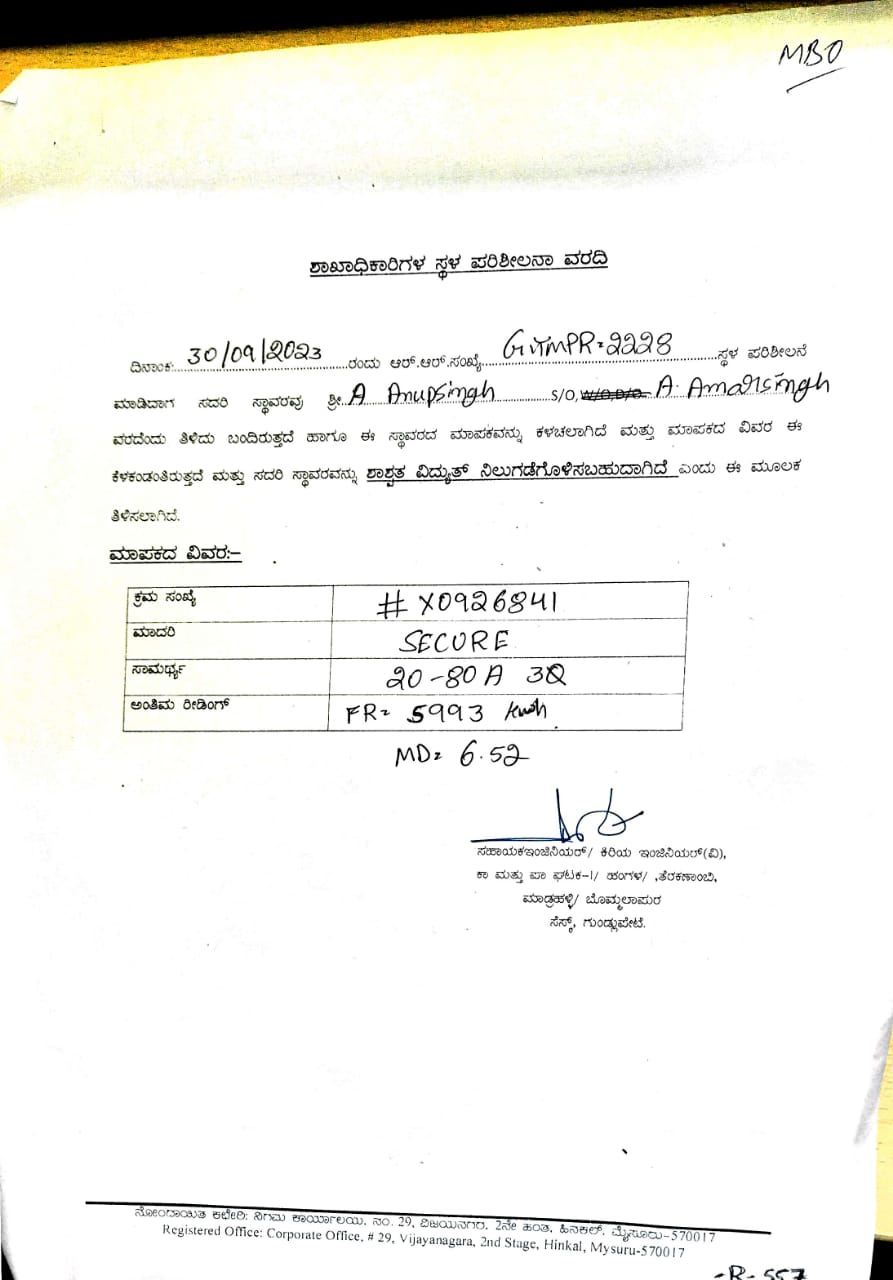 MBO
ಶಾಖಾಧಿಕಾರಿಗಳ ಸ್ಥಳ ಪರಿಶೀಲನಾ ವರದಿ
ದಿನಾಂಕ:30/09/2023 ರಂದು ಆರ್.ಆರ್.ಸಂಖ್ಯೆ GVTMPR=2228 ಸ್ಥಳ ಪರಿಶೀಲನೆ
ಮಾಡಿದಾಗ ಸದರಿ ಸ್ಥಾವರವು ಶ್ರೀ. A Anupsingh S/O, W/O.D/O. A. Amarsingh
ವರದೆಂದು ತಿಳಿದು ಬಂದಿರುತ್ತದೆ ಹಾಗೂ ಈ ಸ್ಥಾವರದ ಮಾಪಕವನ್ನು ಕಳಚಲಾಗಿದೆ ಮತ್ತು ಮಾಪಕದ ವಿವರ ಈ
ಕೆಳಕಂಡಂತಿರುತ್ತದೆ ಮತ್ತು ಸದರಿ ಸ್ಥಾವರವನ್ನು ಶಾಶ್ವತ ವಿದ್ಯುತ್ ನಿಲುಗಡೆಗೊಳಿಸಬಹುದಾಗಿದೆ ಎಂದು ಈ ಮೂಲಕ
ತಿಳಿಸಲಾಗಿದೆ.
ಮಾಪಕದ ವಿವರ:-
ಕ್ರಮ ಸಂಖ್ಯೆ # X0926841
ಮಾದರಿ SECURE
ಸಾಮರ್ಥ್ಯ 20-80 A 3Q
ಅಂತಿಮ ರೀಡಿಂಗ್ FR= 5993 kwh
MD= 6.52
ಸಹಾಯಕಇಂಜಿನಿಯರ್/ ಕಿರಿಯ ಇಂಜಿನಿಯರ್(ವಿ),
ಕಾ ಮತ್ತು ಪಾ ಘಟಕ-1/ ಹಂಗಳ/ ,ತೆರಕಣಾಂಬಿ,
ಮಾಡ್ರಹಳ್ಳಿ/ ಬೊಮ್ಮಲಾಪುರ
ಸೆಸ್ಕ್, ಗುಂಡ್ಲುಪೇಟೆ.
ನೋಂದಾಯಿತ ಕಛೇರಿ: ನಿಗಮ ಕಾರ್ಯಾಲಯ, ನಂ. 29, ವಿಜಯನಗರ, 2ನೇ ಹಂತ, ಹಿನಕಲ್, ಮೈಸೂರು-570017
Registered Office: Corporate Office, # 29, Vijayanagara, 2nd Stage, Hinkal, Mysuru-570017
-R-557